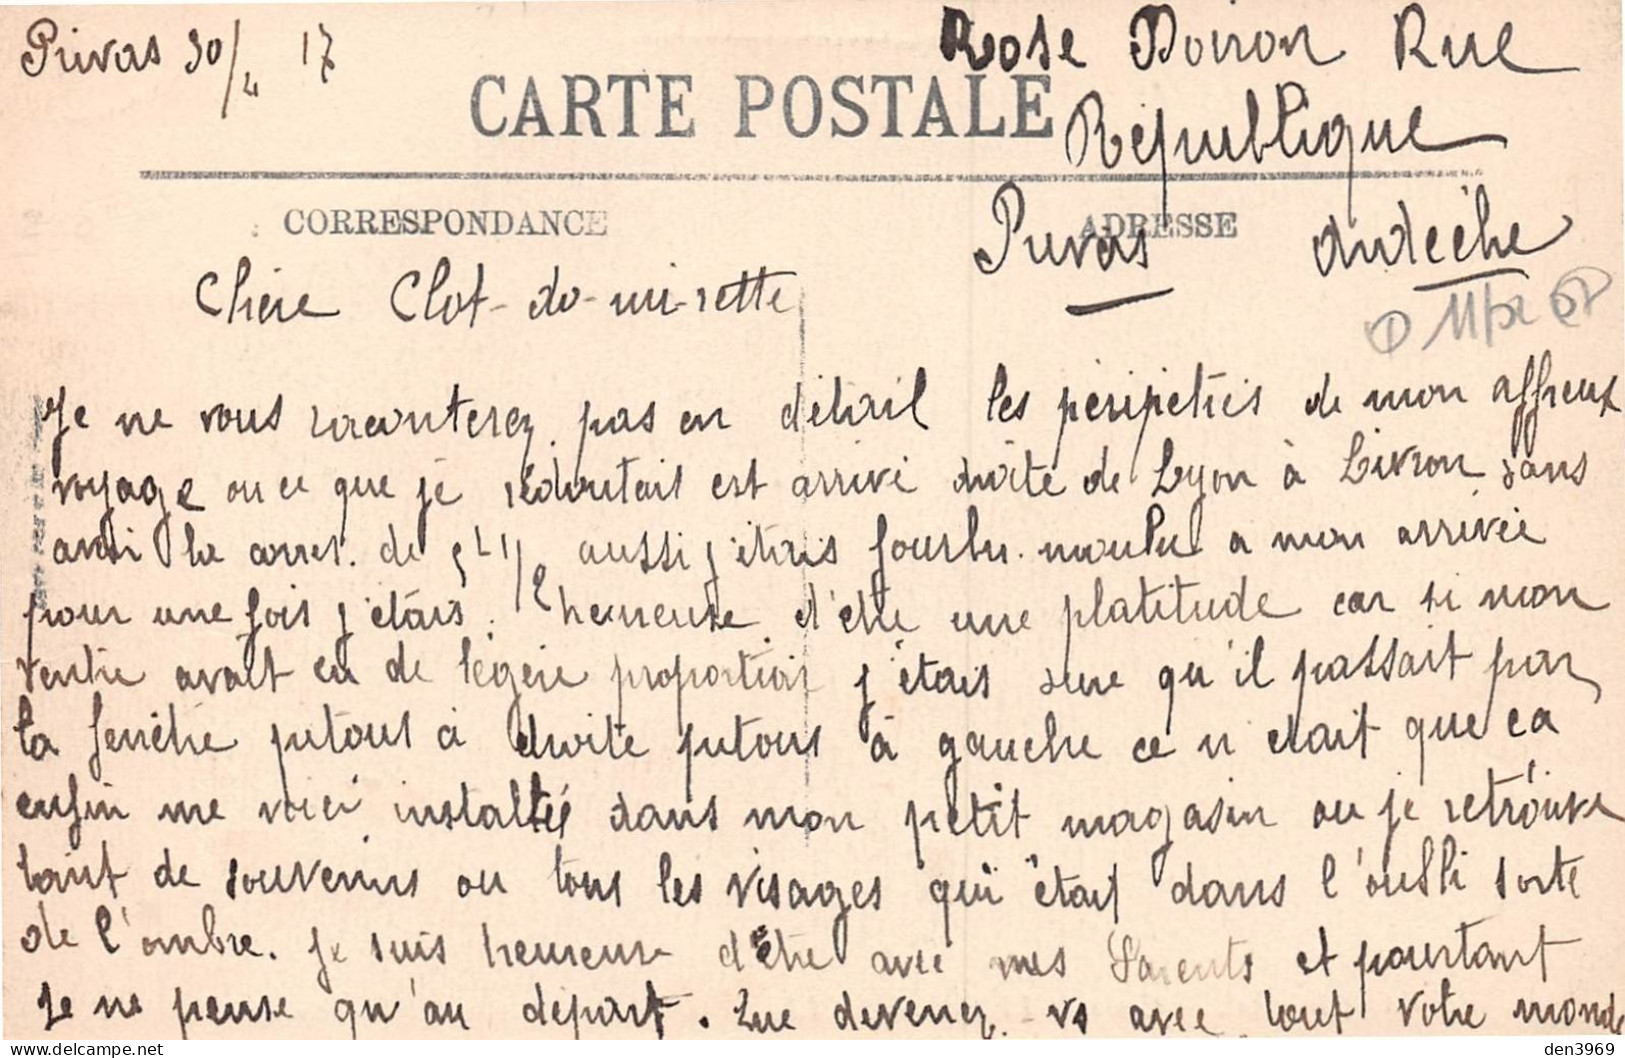 Privas 30/4 17
Rose Doiron Rue
République
Privas Ardèche
CARTE POSTALE
CORRESPONDANCE
ADRESSE
Chère Clot-do-mi-rette
Je ne vous raconterez pas en détail les péripétries de mon affreux
voyage ou ce que je redoutais est arrivé droite de Lyon à Livron sans
avoir la corres. de 5h 1/2 aussi j'étais fourbu moulu a mon arrivée
pour une fois j'étais heureuse d'être une platitude car si mon
ventre avait eu de légère proportion j'étais sure qu'il passait par
la fenêtre putous à droite putous à gauche ce n était que ca
enfin me voici installée dans mon petit magasin ou je retrouve
tant de souvenirs ou tous les visages qui était dans l'oubli sorte
de l'ombre. Je suis heureuse d'être avec mes Parents et pourtant
Je ne pense qu'au départ. Que devenez vs avec tout votre monde
delcampe.net
den3969